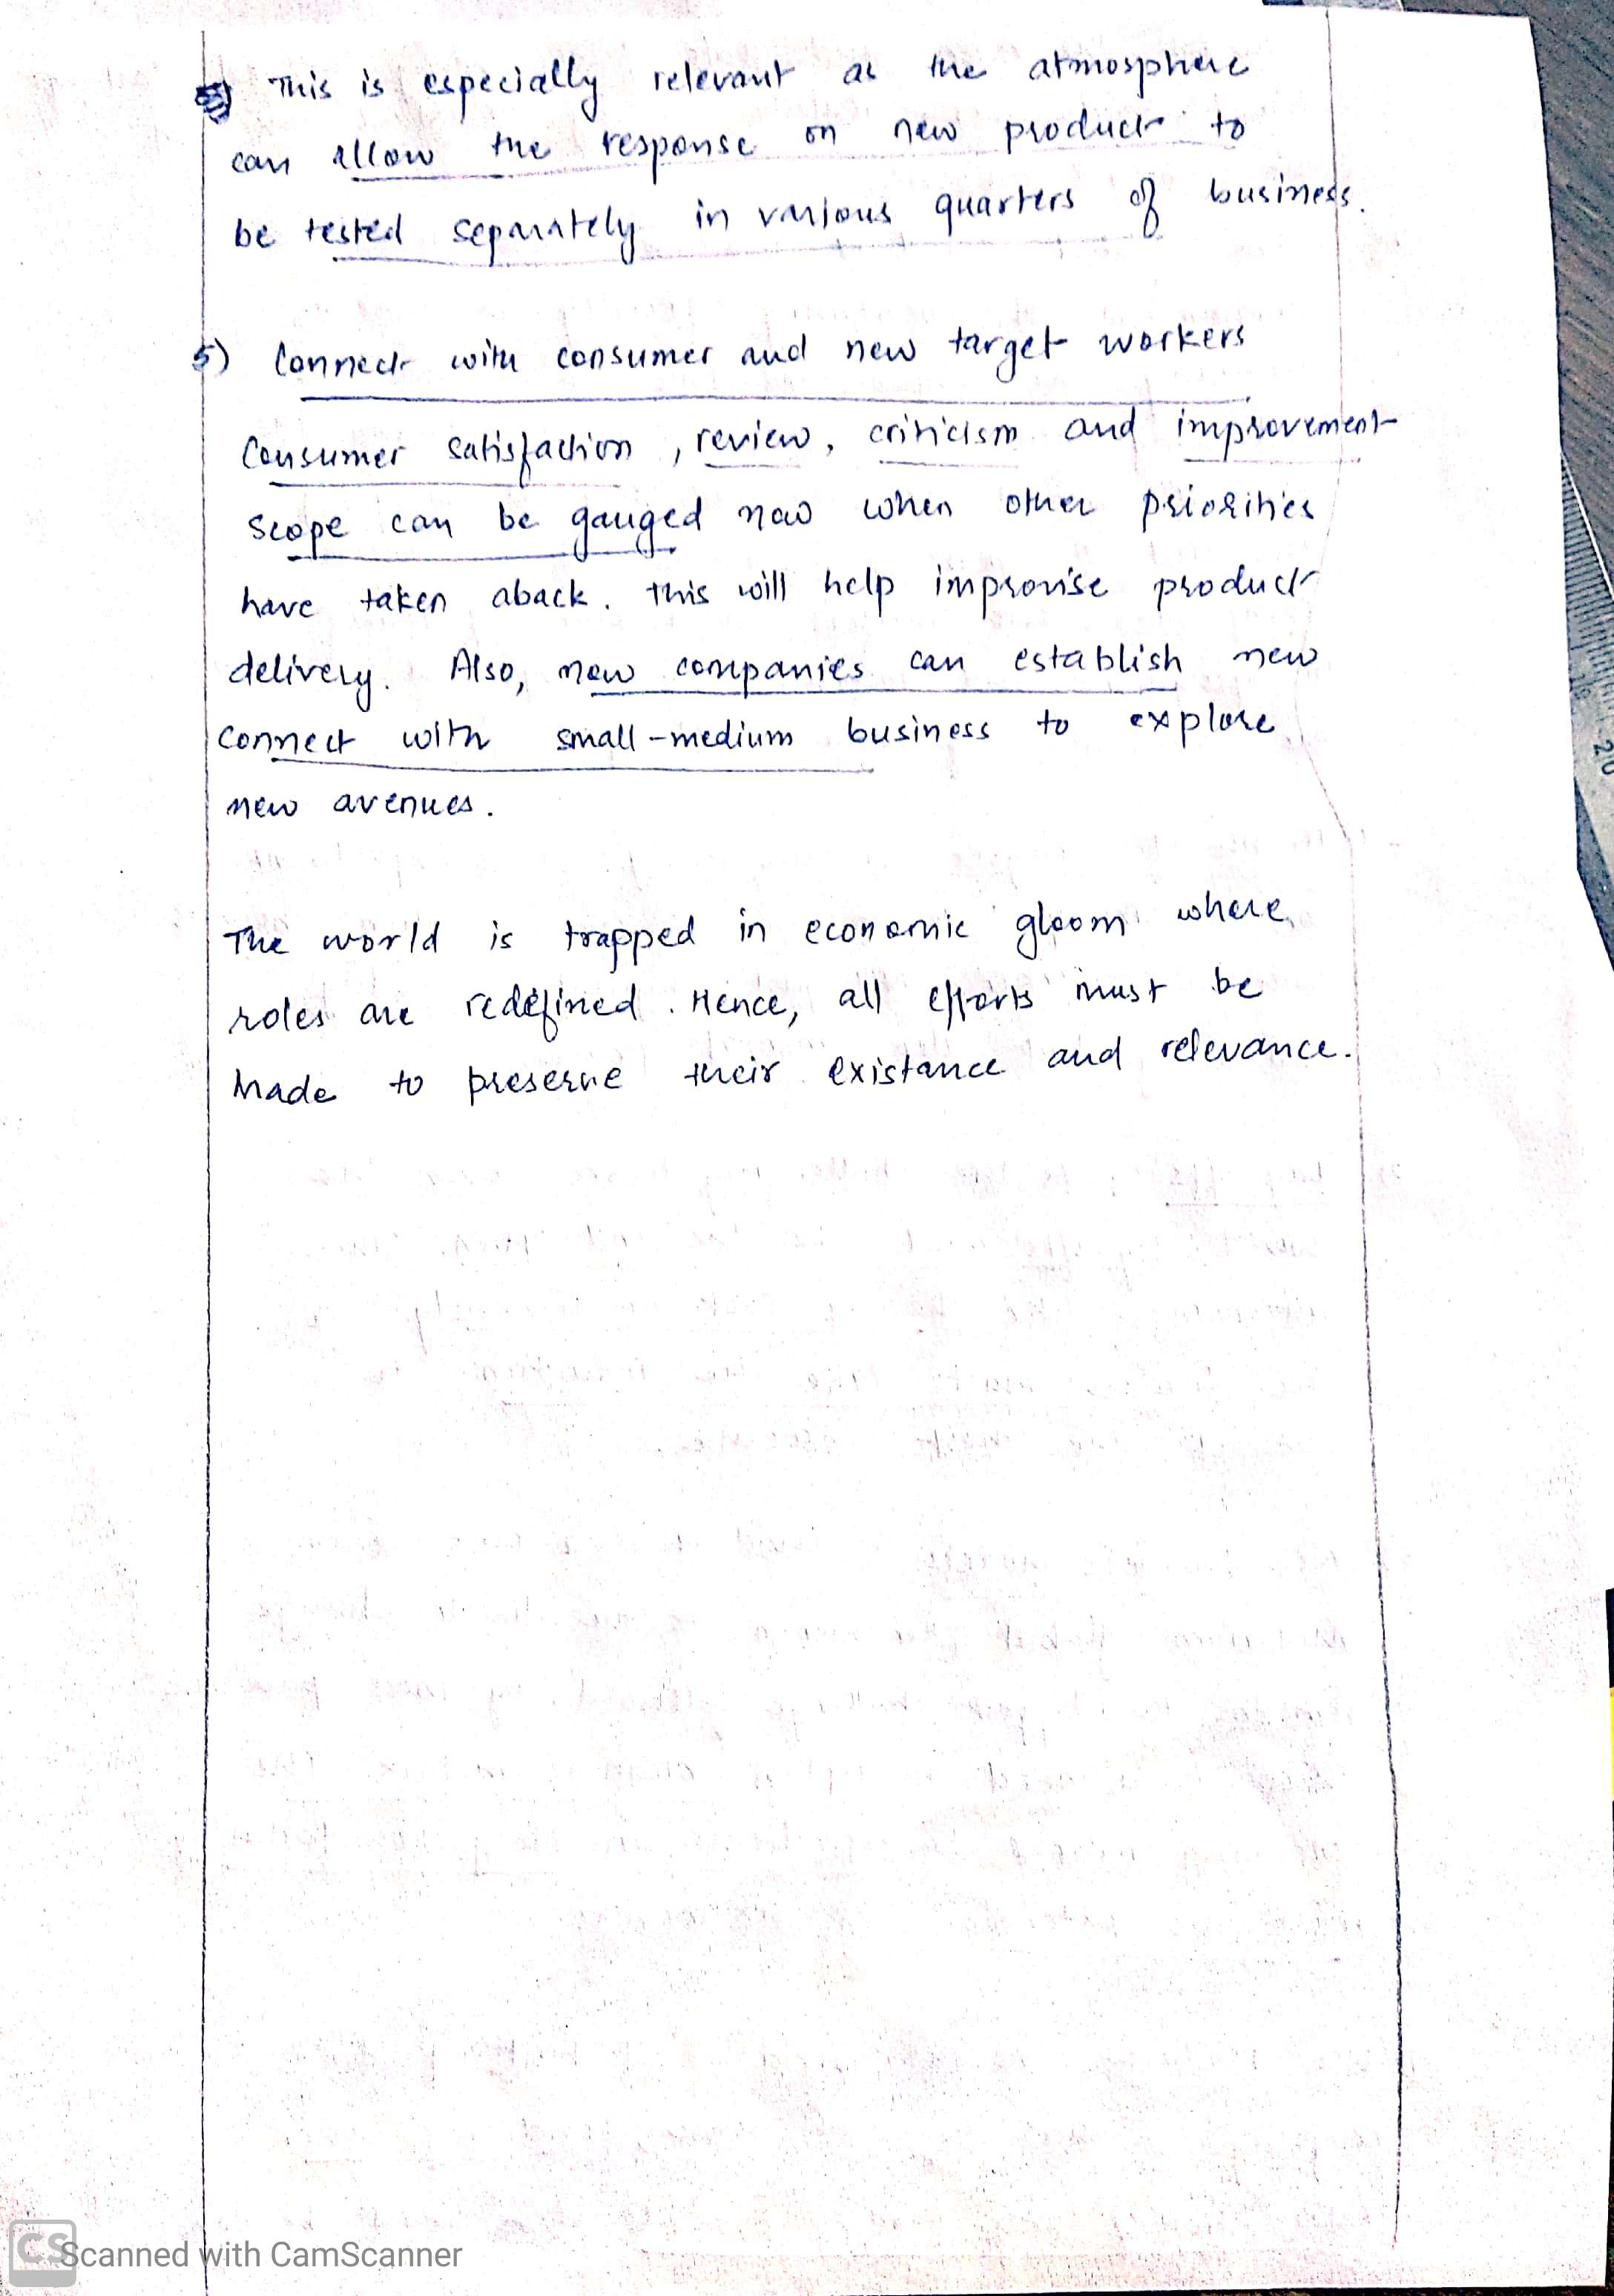 This is especially relevant as the atmosphere
can allow the response on new product to
be tested separately in various quarters of business.
5) Connect with consumer and new target workers
Consumer satisfaction, review, criticism and improvement
scope can be gauged now when other priorities
have taken aback. This will help improvise product
delivery. Also, new companies can establish new
connect with small-medium business to explore
new avenues.
The world is trapped in economic gloom where
roles are redefined. Hence, all efforts must be
made to preserve their existance and relevance.
CS Scanned with CamScanner